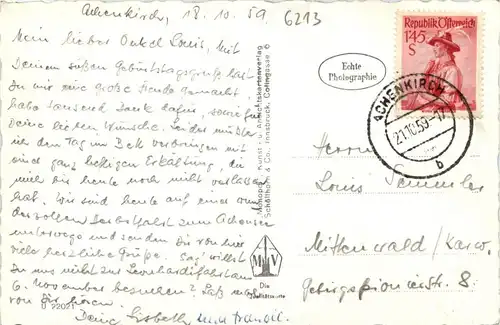 Achenkirch, 18.10.59
6213
Mein lieber Onkel Louis, Mit
Deinem süßen Geburtstagsgruß hast
Du mir eine große Freude gemacht,
habe tausend Dank dafür, sowie für
Deine lieben Wünsche. Leider mußte
ich den Tag im Bett verbringen mit
einer ganz heftigen Erkältung, die
mich bis heute noch nicht verlassen
hat. Wir sind heute auf einer
Herbstfahrt zum Achensee
unterwegs und senden Dir von hier
viele herzliche Grüße. Sag willst
Du uns nicht zur Leonhardifahrt am
6. November besuchen? Laß mal
von Dir hören.
Deine Lisbeth und
D 22021
Monopol, Kunst- u. Ansichtskartenverlag
Schöllhorn & Co., Innsbruck, Colingasse 6
M V
Die
Qualitätskarte
Echte
Photographie
Republik Österreich
1.45
S
ACHENKIRCH
21.10.59-17
b
Herrn
Louis
Mittenwald / Karw.
Gebirgspionierstr. 8